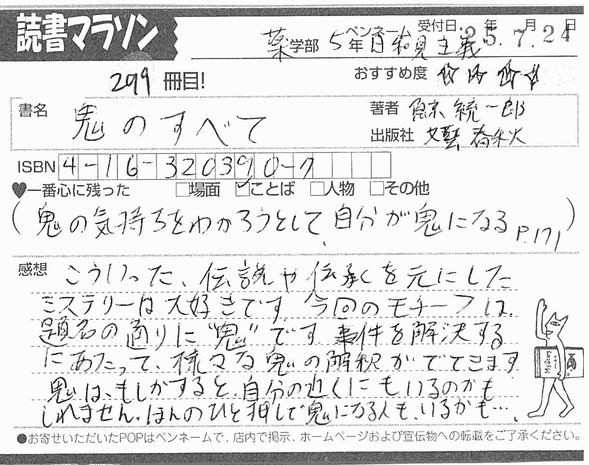 読書マラソン
ペンネーム 受付日: 25.年 7.月 24日
薬学部 5年 日和見主義
299冊目!
おすすめ度 ☆☆☆☆
書名 鬼のすべて
著者 鯨 統一郎
出版社 文藝春秋
ISBN 4-16-320390-7
♥一番心に残った □場面 ☑ことば □人物 □その他
(鬼の気持ちをわかろうとして、自分が鬼になる P.171)
感想 こういった、伝説や伝承を元にした
ミステリーは大好きです。今回のモチーフは、
題名の通りに"鬼"です。事件を解決する
にあたって、様々な鬼の解釈がでてきます。
鬼は、もしかすると、自分の近くにもいるのかも
しれません。ほんのひと押しで鬼になる人も、いるかも…。
●お寄せいただいたPOPはペンネームで、店内で掲示、ホームページおよび宣伝物への転載をご了承ください。